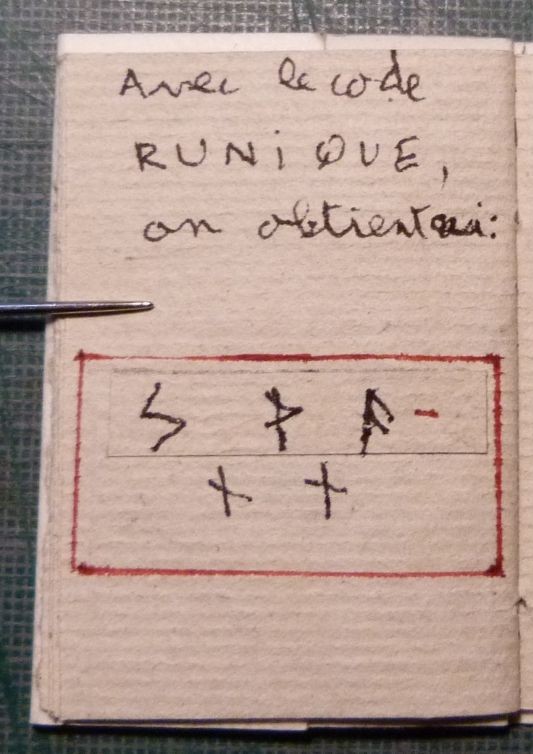 Avec le code
RUNiQUE,
on obtient
ᛋ ᚹ ᚨ -
ᚾ ᚾ